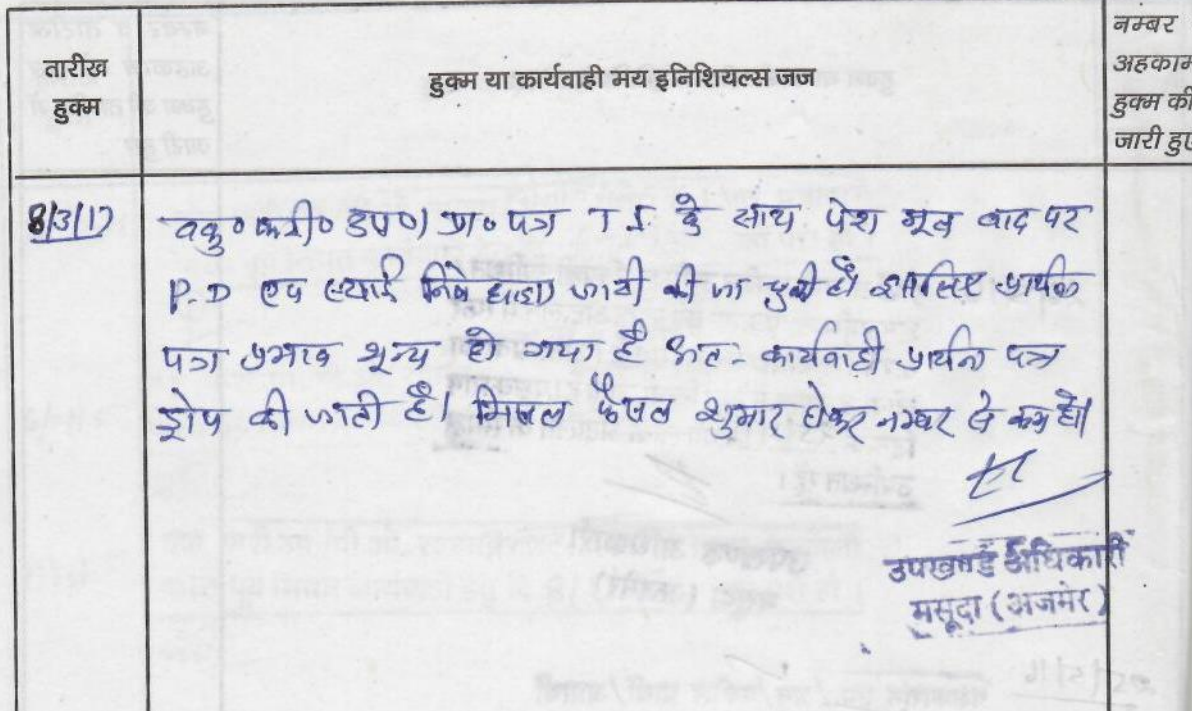 तारीख
हुक्म
हुक्म या कार्यवाही मय इनिशियल्स जज
नम्बर
अहकाम
हुक्म की
जारी हुए
8/3/17
वकु० फरी० उप०। प्रा० पत्र T.I. के साथ पेश मूल वाद पर
P.D एव स्थाई निषेधाज्ञा जारी की जा चुकी है। इसलिए प्रार्थना
पत्र प्रभाव शून्य हो गया है अतः कार्यवाही प्रार्थना पत्र
ड्रोप की जाती है। मिसल फैसल शुमार होकर नम्बर से कम हो।
उपखण्ड अधिकारी
मसूदा (अजमेर)